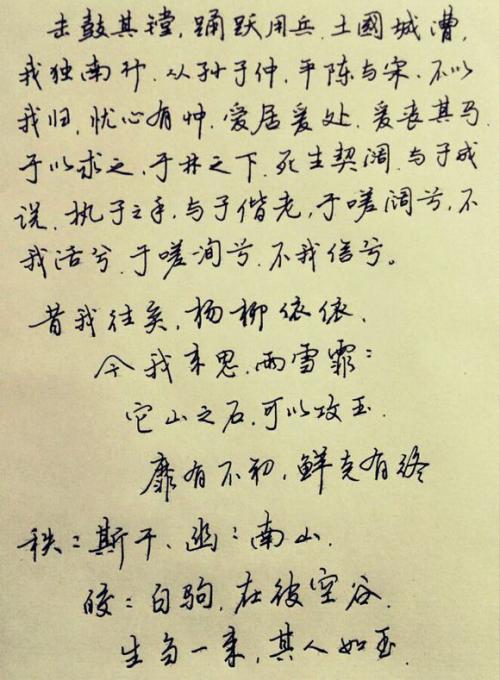 击鼓其镗,踊跃用兵.土國城漕,
我独南行.从孙子仲,平陈与宋.不以
我归,忧心有忡.爰居爰处.爰丧其马.
于以求之,于林之下.死生契阔.与子成
说.执子之手,与子偕老,于嗟阔兮,不
我活兮.于嗟洵兮.不我信兮。
昔我往矣,杨柳依依.
今我来思.雨雪霏:
它山之石,可以攻玉.
靡有不初,鲜克有终
秩:斯干、幽:南山.
皎:白驹,在彼空谷.
生刍一束,其人如玉.